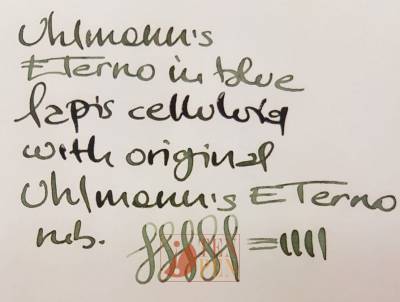 Uhlmann's
ETerno in blue
lapis celluloid
with original
Uhlmann's ETerno
nib.